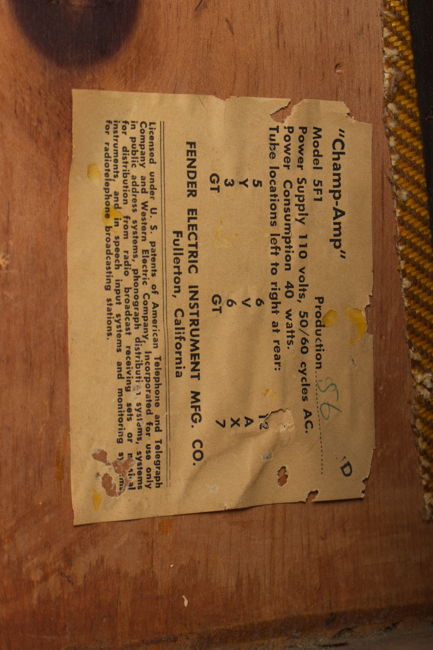 "Champ-Amp" D
Model 5F1 Production
Power Supply 110 volts, 50/60 cycles AC.
Power Consumption 40 watts.
Tube locations left to right at rear:
5 6 12
Y V A
3 6 X
GT GT 7
FENDER ELECTRIC INSTRUMENT MFG. CO.
Fullerton, California
Licensed under U. S. patents of American Telephone and Telegraph
Company and Western Electric Company, Incorporated for use only
in public address systems, phonograph distribution systems, systems
for distribution from radio broadcast receiving sets or musical
instruments, and in speech input systems and monitoring systems
for radiotelephone broadcasting stations.